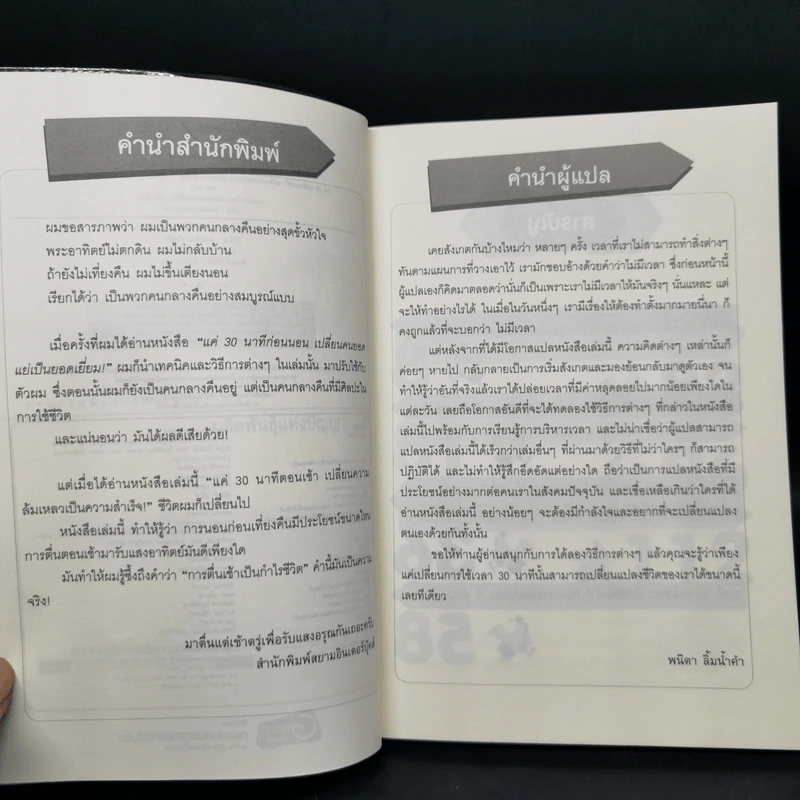 คำนำสำนักพิมพ์
ผมขอสารภาพว่า ผมเป็นพวกคนกลางคืนอย่างสุดขั้วหัวใจ
พระอาทิตย์ไม่ตกดิน ผมไม่กลับบ้าน
ถ้ายังไม่เที่ยงคืน ผมไม่ขึ้นเตียงนอน
เรียกได้ว่า เป็นพวกคนกลางคืนอย่างสมบูรณ์แบบ
เมื่อครั้งที่ผมได้อ่านหนังสือ “แค่ 30 นาทีก่อนนอน เปลี่ยนคนยอด
แย่เป็นยอดเยี่ยม!” ผมก็นำเทคนิคและวิธีการต่างๆ ในเล่มนั้น มาปรับใช้กับ
ตัวผม ซึ่งตอนนั้นผมก็ยังเป็นคนกลางคืนอยู่ แต่เป็นคนกลางคืนที่มีศิลปะใน
การใช้ชีวิต
และแน่นอนว่า มันได้ผลดีเสียด้วย!
แต่เมื่อได้อ่านหนังสือเล่มนี้ “แค่ 30 นาทีตอนเช้า เปลี่ยนความ
ล้มเหลวเป็นความสำเร็จ!” ชีวิตผมก็เปลี่ยนไป
หนังสือเล่มนี้ ทำให้รู้ว่า การนอนก่อนเที่ยงคืนมีประโยชน์ขนาดไหน
การตื่นตอนเช้ามารับแสงอาทิตย์มันดีเพียงใด
มันทำให้ผมรู้ซึ้งถึงคำว่า “การตื่นเช้าเป็นกำไรชีวิต” คำนี้มันเป็นความ
จริง!
มาตื่นแต่เช้าตรู่เพื่อรับแสงอรุณกันเถอะครับ
สำนักพิมพ์สยามอินเตอร์บุ๊คส์
คำนำผู้แปล
เคยสังเกตกันบ้างไหมว่า หลายๆ ครั้ง เวลาที่เราไม่สามารถทำสิ่งต่างๆ
ทันตามแผนการที่วางเอาไว้ เรามักชอบอ้างด้วยคำว่าไม่มีเวลา ซึ่งก่อนหน้านี้
ผู้แปลเองก็คิดมาตลอดว่านั่นก็เป็นเพราะเราไม่มีเวลาให้มันจริงๆ นั่นแหละ แต่
จะให้ทำอย่างไรได้ ในเมื่อในวันหนึ่งๆ เรามีเรื่องให้ต้องทำตั้งมากมายนี่นา ก็
คงถูกแล้วที่จะบอกว่า ไม่มีเวลา
แต่หลังจากที่ได้มีโอกาสแปลหนังสือเล่มนี้ ความคิดต่างๆ เหล่านั้นก็
ค่อยๆ หายไป กลับกลายเป็นการเริ่มสังเกตและมองย้อนกลับมาดูตัวเอง จน
ทำให้รู้ว่าอันที่จริงแล้วเราได้ปล่อยเวลาที่มีค่าหลุดลอยไปมากน้อยเพียงใดใน
แต่ละวัน เลยถือโอกาสอันดีที่จะได้ทดลองใช้วิธีการต่างๆ ที่กล่าวในหนังสือ
เล่มนี้ไปพร้อมกับการเรียนรู้การบริหารเวลา และไม่น่าเชื่อว่าผู้แปลสามารถ
แปลหนังสือเล่มนี้ได้เร็วกว่าเล่มอื่นๆ ที่ผ่านมาด้วยวิธีที่ไม่ว่าใครๆ ก็สามารถ
ปฏิบัติได้ และไม่ทำให้รู้สึกอึดอัดแต่อย่างใด ถือว่าเป็นการแปลหนังสือที่มี
ประโยชน์อย่างมากต่อคนเราในสังคมปัจจุบัน และเชื่อเหลือเกินว่าใครที่ได้
อ่านหนังสือเล่มนี้ อย่างน้อยๆ จะต้องมีกำลังใจและอยากที่จะเปลี่ยนแปลง
ตนเองด้วยกันทั้งนั้น
ขอให้ท่านผู้อ่านสนุกกับการได้ลองวิธีการต่างๆ แล้วคุณจะรู้ว่าเพียง
แค่เปลี่ยนการใช้เวลา 30 นาทีนั้นสามารถเปลี่ยนแปลงชีวิตของเราได้ขนาดนี้
เลยทีเดียว
พนิดา ลิ้มน้ำคำ